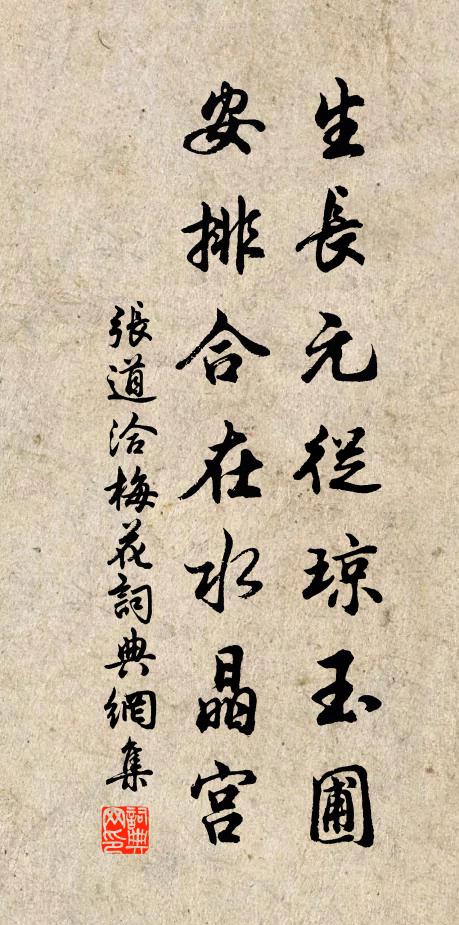 生長元從琼玉圃
安排合在水晶宮
張道洽梅花詞典網集
詞典网印